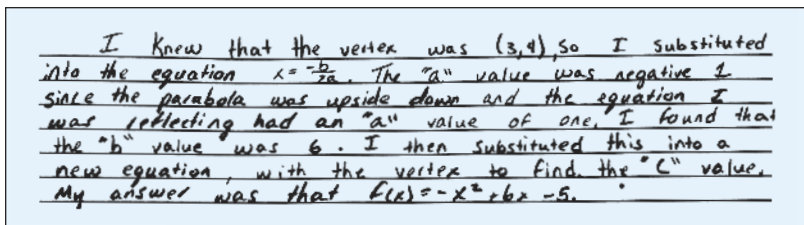 I knew that the vertex was (3,4), so I substituted
into the equation x = -b/2a. The "a" value was negative 1
since the parabola was upside down and the equation I
was reflecting had an "a" value of one. I found that
the "b" value was 6. I then substituted this into a
new equation, with the vertex to find the "C" value.
My answer was that f(x) = -x² + 6x - 5.